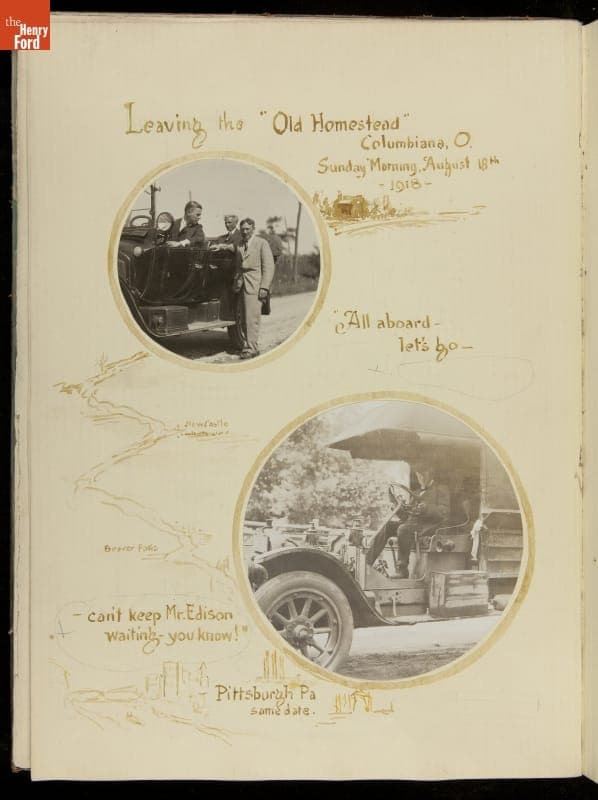 the
Henry
Ford
Leaving the "Old Homestead"
Columbiana, O.
Sunday Morning, August 18th
- 1918 -
"All aboard -
let's go -
New Castle
Beaver Falls
- can't keep Mr. Edison
waiting - you know!"
Pittsburgh Pa
same date.